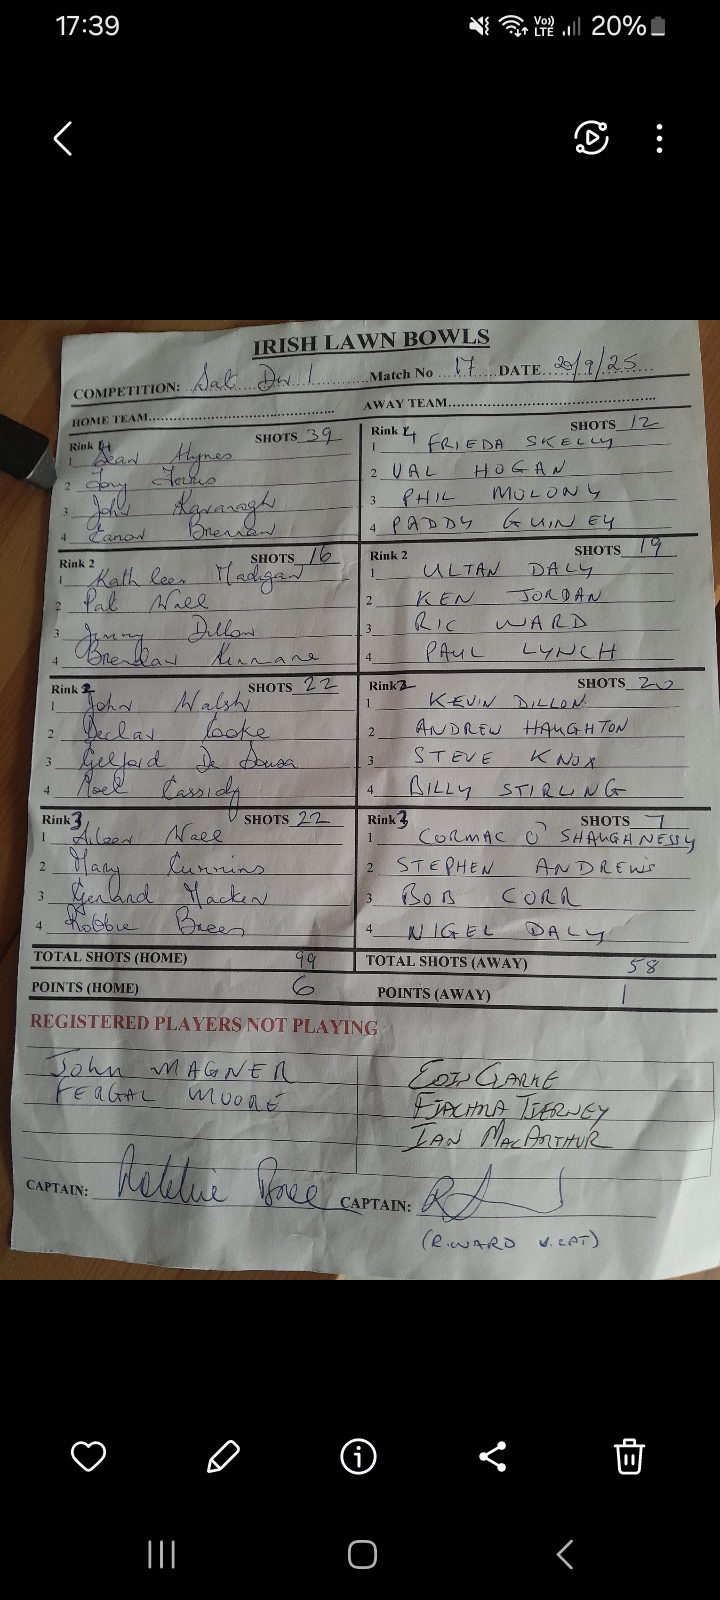 17:39 Vo)) LTE 20%
IRISH LAWN BOWLS
COMPETITION: Sat Div 1 Match No 17 DATE 20/9/25
HOME TEAM AWAY TEAM
Rink 4 SHOTS 39
1 Sean Hynes
2 Tony
3 John Kavanagh
4 Brennan
Rink 4 SHOTS 12
1 FRIEDA SKELLY
2 VAL HOGAN
3 PHIL MOLONY
4 PADDY GUINEY
Rink 2 SHOTS 16
1 Kathleen Madigan
2 Pat Wall
3 Jimmy Dillon
4 Brendan Kinnane
Rink 2 SHOTS 19
1 ULTAN DALY
2 KEN JORDAN
3 RIC WARD
4 PAUL LYNCH
Rink SHOTS 22
1 John Walsh
2 Declan Cooke
3 Gelford De Sousa
4 Noel Cassidy
Rink SHOTS 20
1 KEVIN DILLON
2 ANDREW HAUGHTON
3 STEVE KNOX
4 BILLY STIRLING
Rink 3 SHOTS 22
1 Aileen Wall
2 Mary Cummins
3 Gerard Macken
4 Robbie Brees
Rink 3 SHOTS 7
1 CORMAC O'SHAUGHANESSY
2 STEPHEN ANDREWS
3 BOB CORR
4 NIGEL DALY
TOTAL SHOTS (HOME) 99 TOTAL SHOTS (AWAY) 58
POINTS (HOME) 6 POINTS (AWAY) 1
REGISTERED PLAYERS NOT PLAYING
JOHN MAGNER
FERGAL MOORE
EOIN CLARKE
FIACHRA TIERNEY
IAN MACARTHUR
CAPTAIN: Robbie Bree CAPTAIN:
(R. WARD V. CAT)